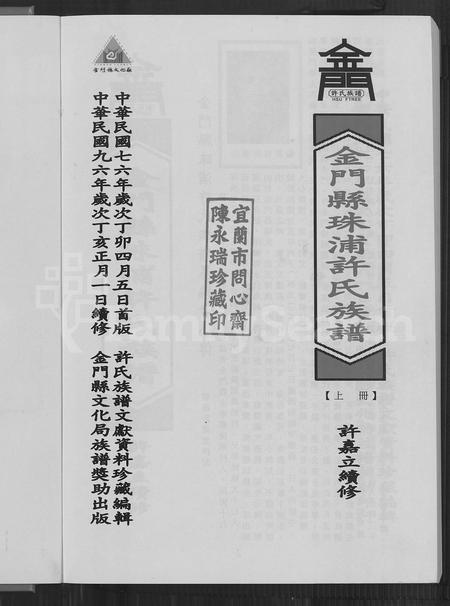 金門
許氏族譜
HSU FTREE
金門縣珠浦許氏族譜
【上 冊】
許嘉立續修
宜蘭市問心齋
陳永瑞珍藏印
金門縣文化局
中華民國七六年歲次丁卯四月五日首版 許氏族譜文獻資料珍藏編輯
中華民國九六年歲次丁亥正月一日續修 金門縣文化局族譜獎助出版
FamilySearch